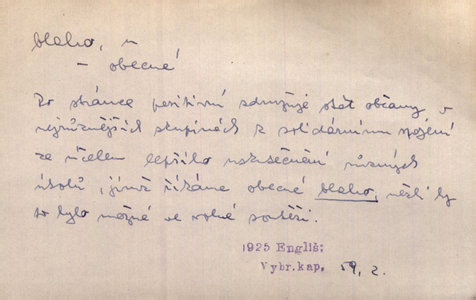 blaho, -
- obecné
Po stránce positivní sdružuje stát občany v
nejrůznějších skupinách k solidárnímu spojení
za účelem lepšího uskutečnění různých
úkolů, jimž říkáme obecné blaho, nežli by
to bylo možné ve volné soutěži.
1925 Engliš:
Vybr.kap. 59, 2.